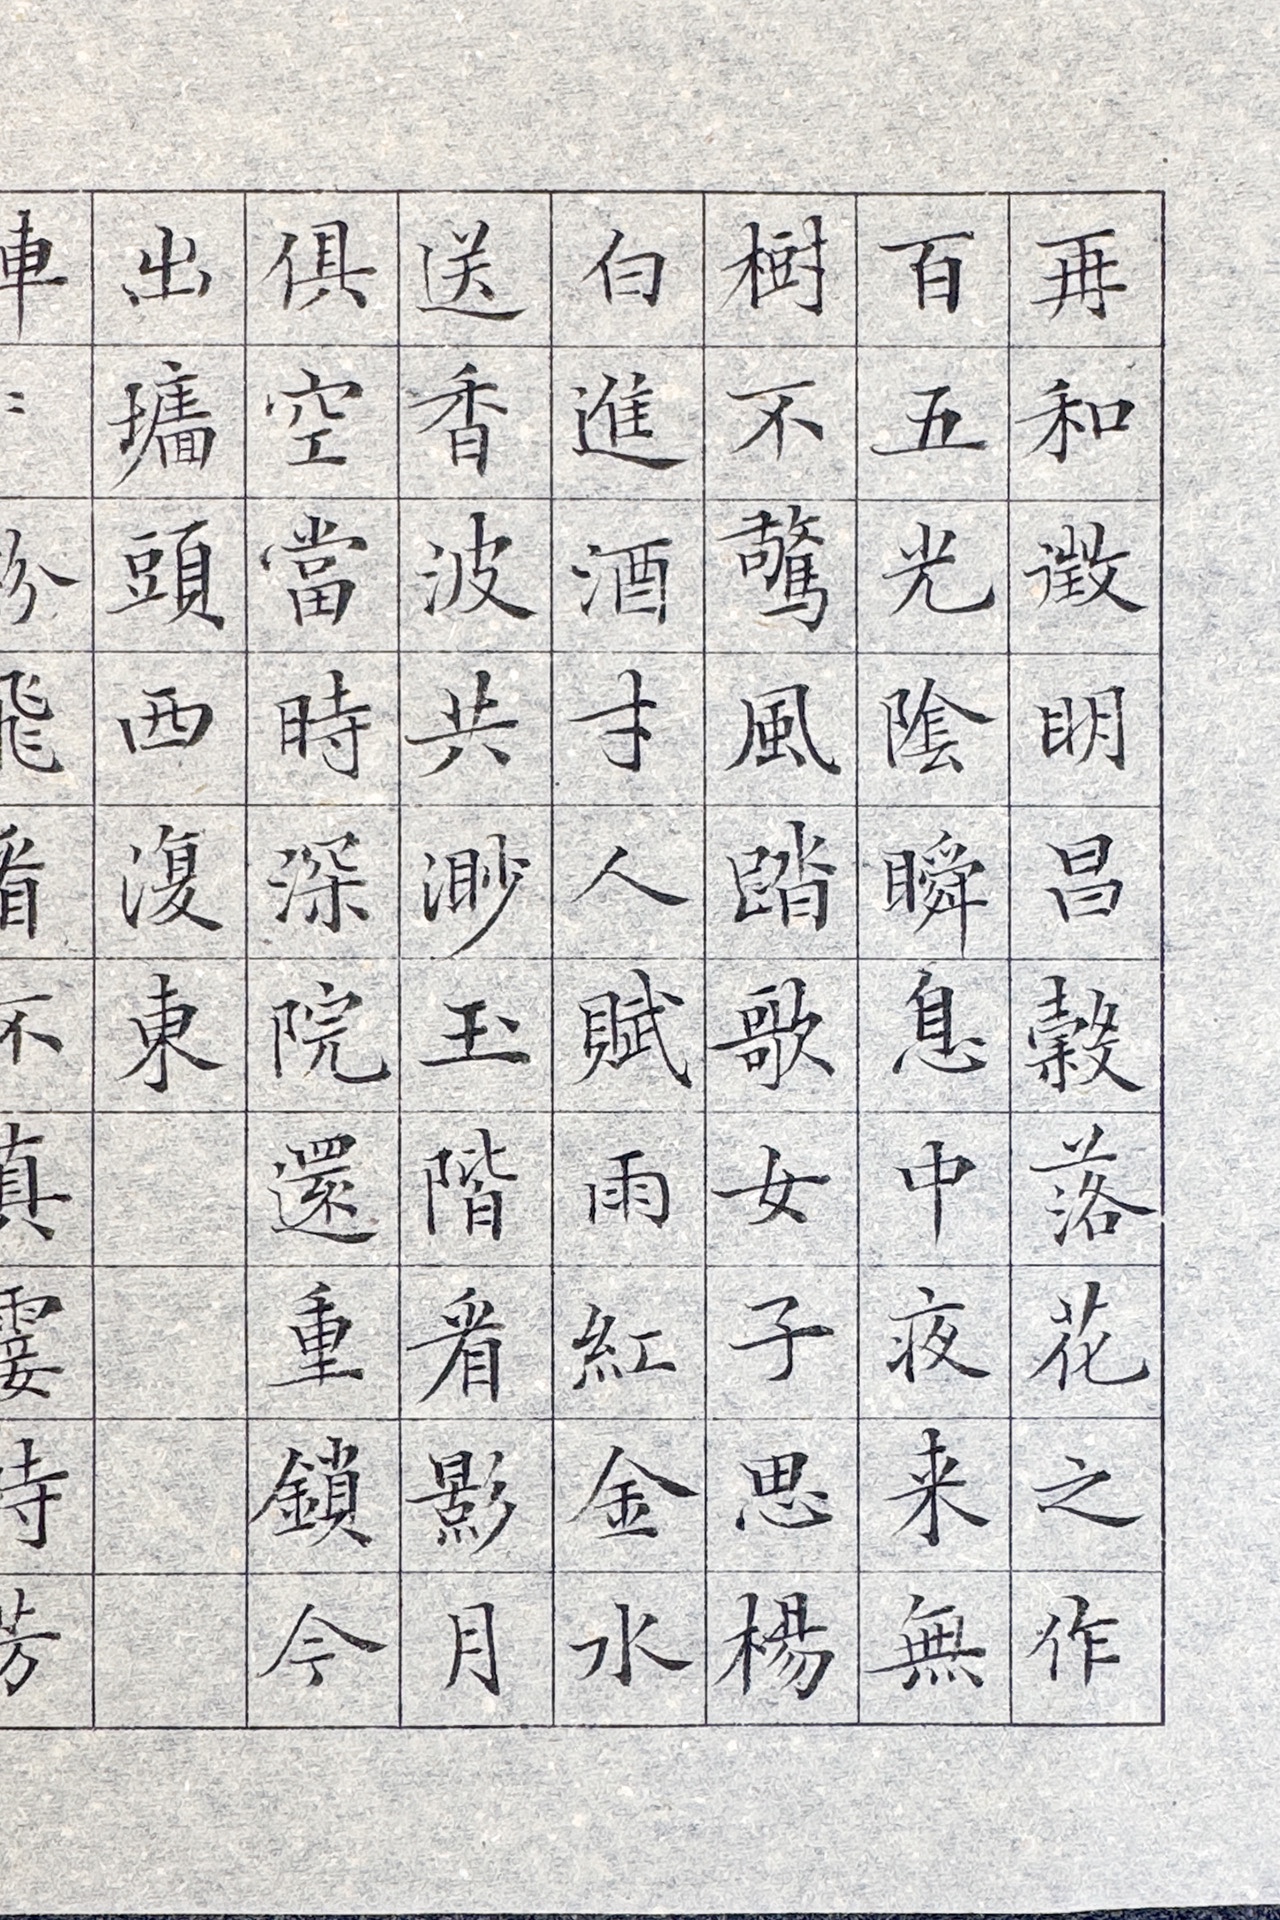 再和徵明昌穀落花之作
百五光陰瞬息中夜来無
樹不驚風踏歌女子思楊
白進酒才人賦雨紅金水
送香波共渺玉階看影月
俱空當時深院還重鎖今
出墻頭西復東
飛看不真霎時芳